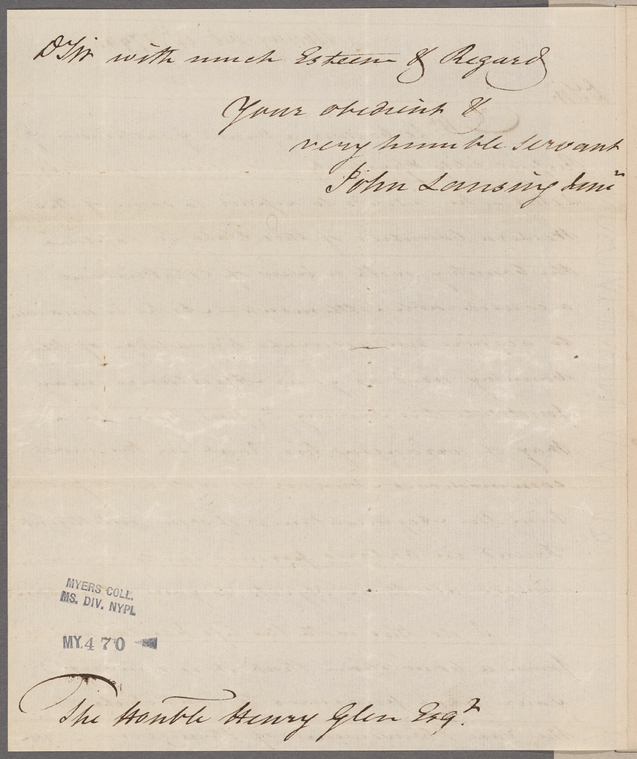 D Sir with much Esteem & Regard
Your obedient &
very humble servant
John Lansing Junr
MYERS COLL.
MS. DIV. NYPL
MY.470
The Honble Henry Glen Esqr.